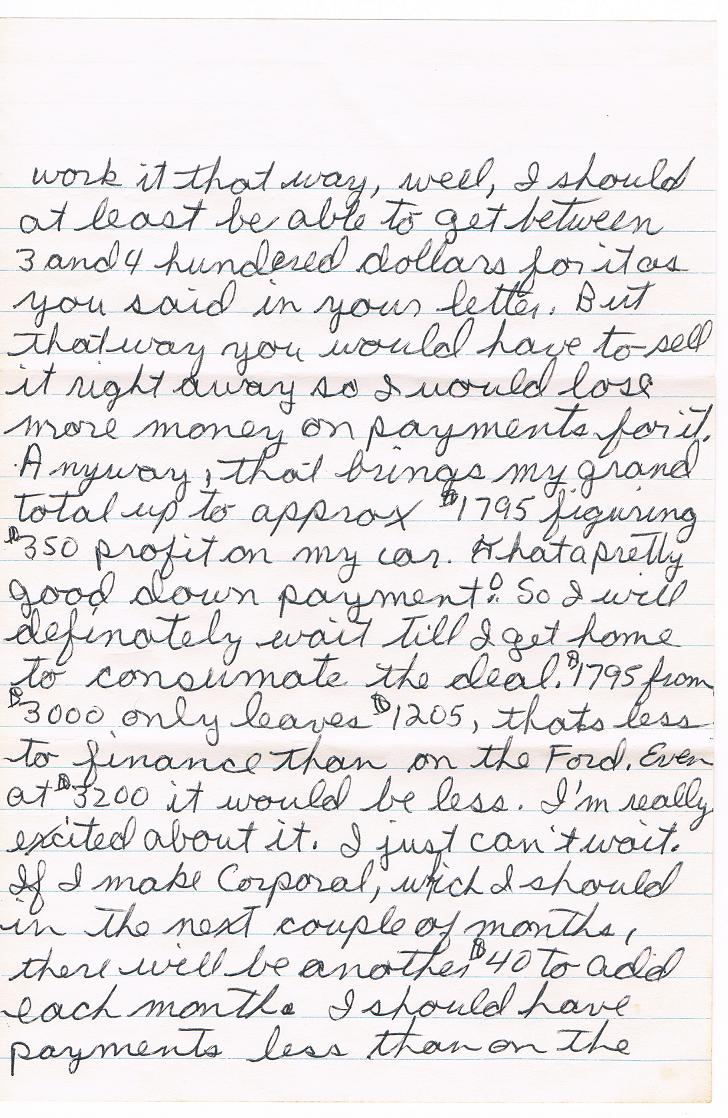 work it that way, well, I should
at least be able to get between
3 and 4 hundered dollars for it as
you said in your letter. But
that way you would have to sell
it right away so I would lose
more money on payments for it.
Anyway, that brings my grand
total up to approx $1795 figuring
$350 profit on my car. What a pretty
good down payment! So I will
definately wait till I get home
to consumate the deal. $1795 from
$3000 only leaves $1205, thats less
to finance than on the Ford. Even
at $3200 it would be less. I'm really
excited about it. I just can't wait.
If I make Corporal, wich I should
in the next couple of months,
there will be another $40 to add
each month. I should have
payments less than on the